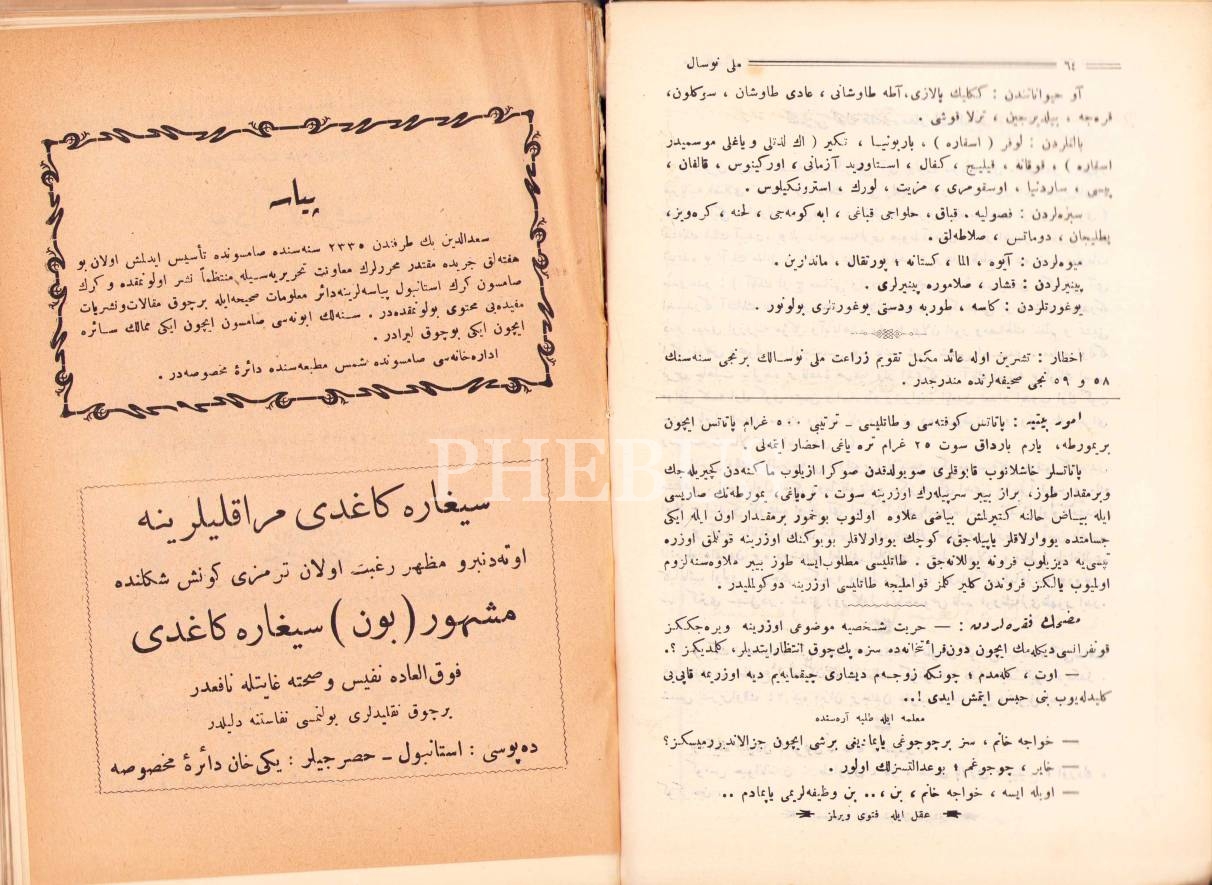 ملی نوسال ٦٤
آو حیواناتندن : ککلیك پالازی، آطه طاوشانی ، عادی طاوشان ، سوکلون،
قره‌جه ، بیلدیرجین ، ترلا قوشی .
بالقلردن : لوفر ( اسقاره ) ، باربونیا ، تکیر ( اك لذتلی و یاغلی موسمیدر
اسقاره ) ، فوفانه ، قیلیج ، کفال ، استاورید آزمانی ، اورکینوس ، قالقان ،
، ساردنیا ، اوسقومری ، مزیت ، لورك ، استرونکیلوس .
سبزه‌لردن : فصولیه . قباق ، حلواجی قباغی ، ابه کومه‌جی ، لحنه ، کره‌ویز،
پطلیجان ، دوماتس ، صلاطه‌لق .
میوه‌لردن : آیوه ، الما ، کستانه ؛ پورتقال ، ماندارین .
پینیرلردن : قشار ، صلاموره پینیرلری .
یوغورتلردن : کاسه ، طوربه ودستی یوغورتلری بولونور .
اخطار : تشرین اوله عائد مکمل تقویم زراعت ملی نوسالك برنجی سنه‌سنك
٥٨ و ٥٩ نجی صحیفه‌لرنده مندرجدر .
امور بیتیه : پاتاتس کوفته‌سی و طاتلیسی ـ ترتیبی ٥٠٠ غرام پاتاتس ایچون
بریمورطه، یارم بارداق سوت ٢٥ غرام تره یاغی احضار ایتمه‌لی .
پاتاتسلر خاشلانوب قابوقلری صویولدقدن صوکرا ازیلوب ماکنه‌دن کچیریله‌جك
وبرمقدار طوز، براز بیبر سرپیله‌رك اوزرینه سوت ، تره‌یاغی، یمورطه‌نك صاریسی
ایله بیاض حالنه کتیرلمش بیاضی علاوه اولنوب بوخمور برمقدار اون ایله ایکی
جسامتده یووارلاقلر یاپیله‌جق، کوچك یووارلاقلر بویوکنك اوزرینه قونلق اوزره
تپسی‌یه دیزیلوب فرونه یوللانه‌جق . طاتلیسی مطلوب‌ایسه طوز بیبر علاوه‌سنه‌لزوم
اولمیوب یالکز فروندن کلیر کلمز قواملیجه طاتلیسی اوزرینه دوکولملیدر .
مضحك فقره‌لردن : — حریت شخصیه موضوعی اوزرینه ویره‌جککز
قونفرانسی‌دیکله‌مك ایچون دون‌قرأتخانه‌ده سزه پك‌چوق انتظارایتدیلر، کلمدیکز ؟.
— اوت ، کله‌مدم ؛ چونکه زوجه‌م دیشاری چیقمایه‌یم دیه اوزریمه قاپی‌یی
کلیدله‌یوب بنی حبس ایتمش ایدی !..
معلمه ایله طلبه آره‌سنده
— خواجه خانم ، سز برچوجوغی یاپمادیغی برشی ایچون جزالاندیررمیسکز؟
— خایر ، چوجوغم ؛ بوعدالتسزلك اولور .
— اویله ایسه ، خواجه خانم ، بن ،.. بن وظیفه‌لریمی یاپمادم ..
عقل ایله فتوی ویرلمز
پیاسه
سعدالدین بك طرفندن ٢٣٣٥ سنه‌سنده صامسونده تأسیس ایدلمش اولان بو
هفته‌لق جریده مقتدر محررلرك معاونت تحریریه‌سیله منتظماً نشر اولونمقده و کرك
صامسون کرك استانبول پیاسه‌لرینه‌دائر معلومات صحیحه‌ایله برچوق مقالات‌ونشریات
مفیده‌یی محتوی بولونمقده‌در . سنه‌لك ابونه‌سی صامسون ایچون ایکی ممالك سائره
ایچون ایکی بوچوق لیرادر .
اداره‌خانه‌سی صامسونده شمس مطبعه‌سنده دائرۀ مخصوصه‌در .
سیغاره کاغدی مراقلیلرینه
اوته‌دنبرو مظهر رغبت اولان ترمزی کونش شکلنده
مشهور ( بون ) سیغاره کاغدی
فوق‌العاده نفیس و صحته غایتله نافعدر
برچوق تقلیدلری بولنمسی نفاستنه دلیلدر
ده‌پوسی : استانبول ـ حصرجیلر : یکی‌خان دائرۀ مخصوصه
PHEBUS